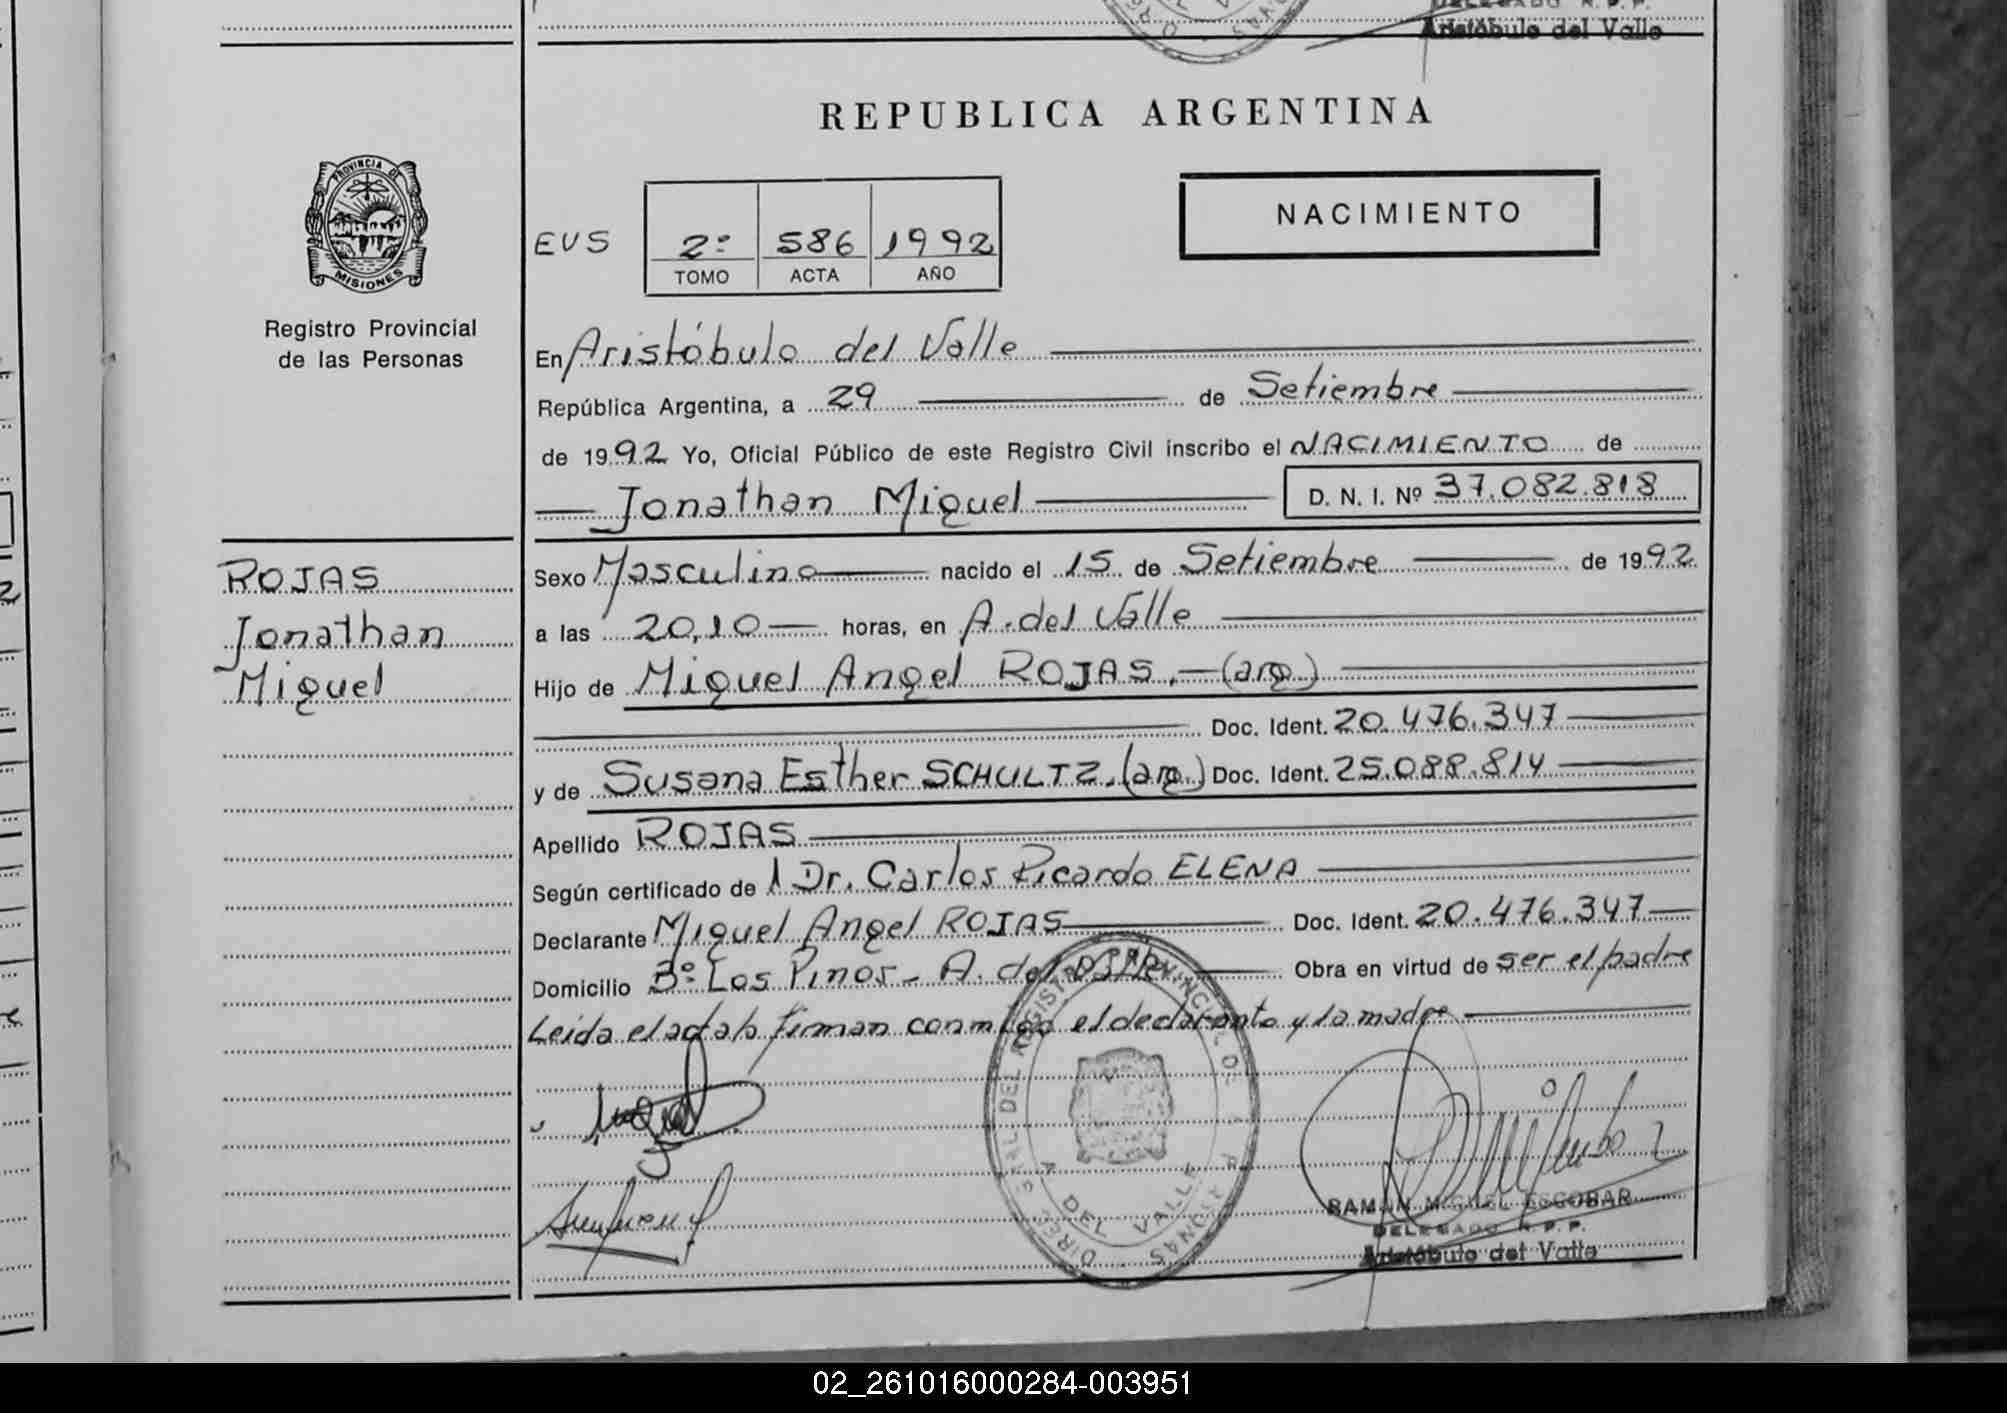 DELEGADO R.P.P.
Aristóbulo del Valle
REPUBLICA ARGENTINA
PROVINCIA DE
MISIONES
Registro Provincial
de las Personas
EVS
2º 586 1992
TOMO ACTA AÑO
NACIMIENTO
En Aristóbulo del Valle
República Argentina, a 29 de Setiembre
de 1992 Yo, Oficial Público de este Registro Civil inscribo el NACIMIENTO de
Jonathan Miguel D. N. I. Nº 37.082.818
ROJAS
Jonathan
Miguel
Sexo Masculino nacido el 15 de Setiembre de 1992
a las 20,10 horas, en A. del Valle
Hijo de Miguel Angel ROJAS.-(arg)
Doc. Ident. 20.476.347
y de Susana Esther SCHULTZ.(arg.) Doc. Ident. 25.088.814
Apellido ROJAS
Según certificado de l Dr. Carlos Ricardo ELENA
Declarante Miguel Angel ROJAS Doc. Ident. 20.476.347
Domicilio Bº Los Pinos - A. del Valle Obra en virtud de ser el padre
Leida el acta la firman conmigo el declarante y la madre
A DEL VALLE
RAMON MIGUEL ESCOBAR
DELEGADO R.P.P.
Aristóbulo del Valle
02_261016000284-003951